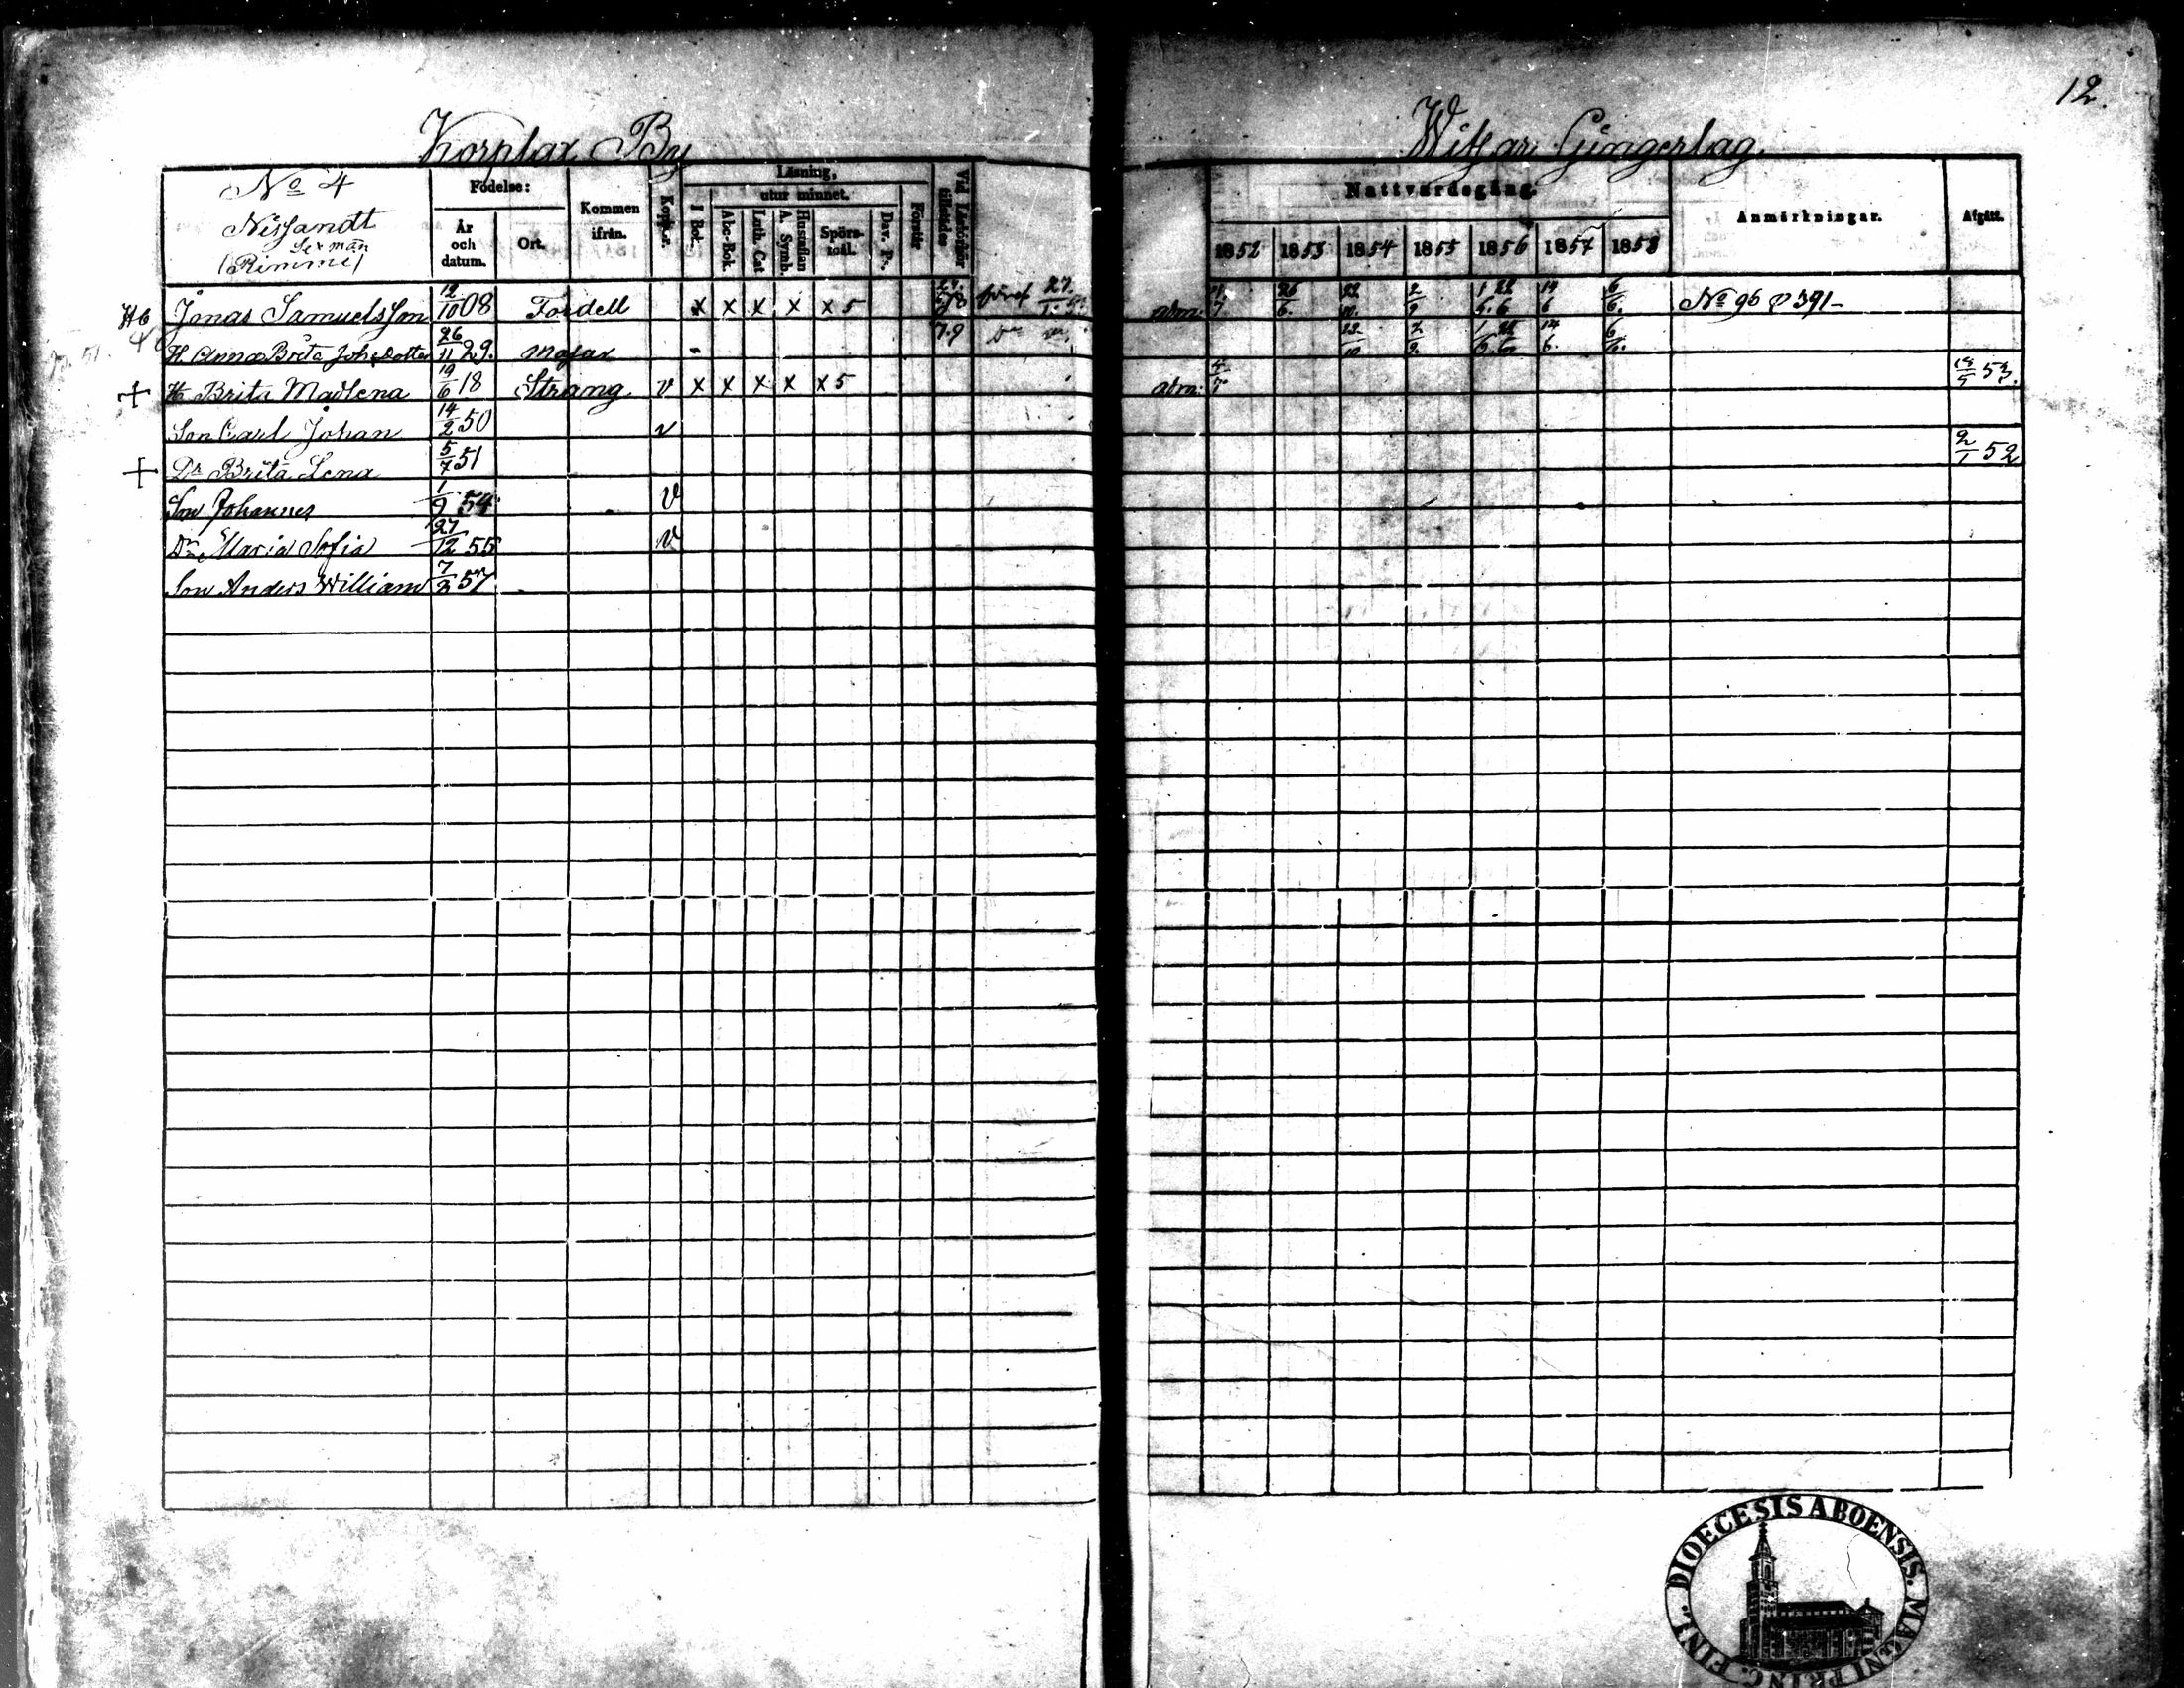 12.
Korplax By
Witsar Gingerlag
No 4
Nissandt
Sexman
(Rimmi)
Födelse:
År och datum.
Ort.
Kommen ifrån.
Kopp-r.
Läsning,
I Bok.
utur minnet.
Abc-Bok.
Luth. Cat
A. Symb.
Hustaflan
Spörs-mål.
Dav. Ps.
Förstår
Vid Läsförhör tillstädes
Nattvardsgång.
1852 1853 1854 1855 1856 1857 1858
Anmärkningar.
Afgått.
Jonas Samuelsson 12/10 08 Fordell x x x x x 5 27. adm: 26/6. 22/10. 2/9 14/6 6/6. No 96 391-
H. Anna Brita Johsdotter 26/11 29. 7.9 22/10 2/9. 14/6. 6/6.
+ H Brita Madlena 19/6 18 Strang v x x x x x 5 adm: 4/7 53.
Son Carl Johan 14/2 50 v
+ Dr Brita Lena 5/7 51 2/1 52
Son Johannes 1/9 54 v
Dr Maria Sofia 27/12 55 v
Son Anders William 7/3 57
DIOECESIS ABOENSIS. MAGNI PRINC. FINL.